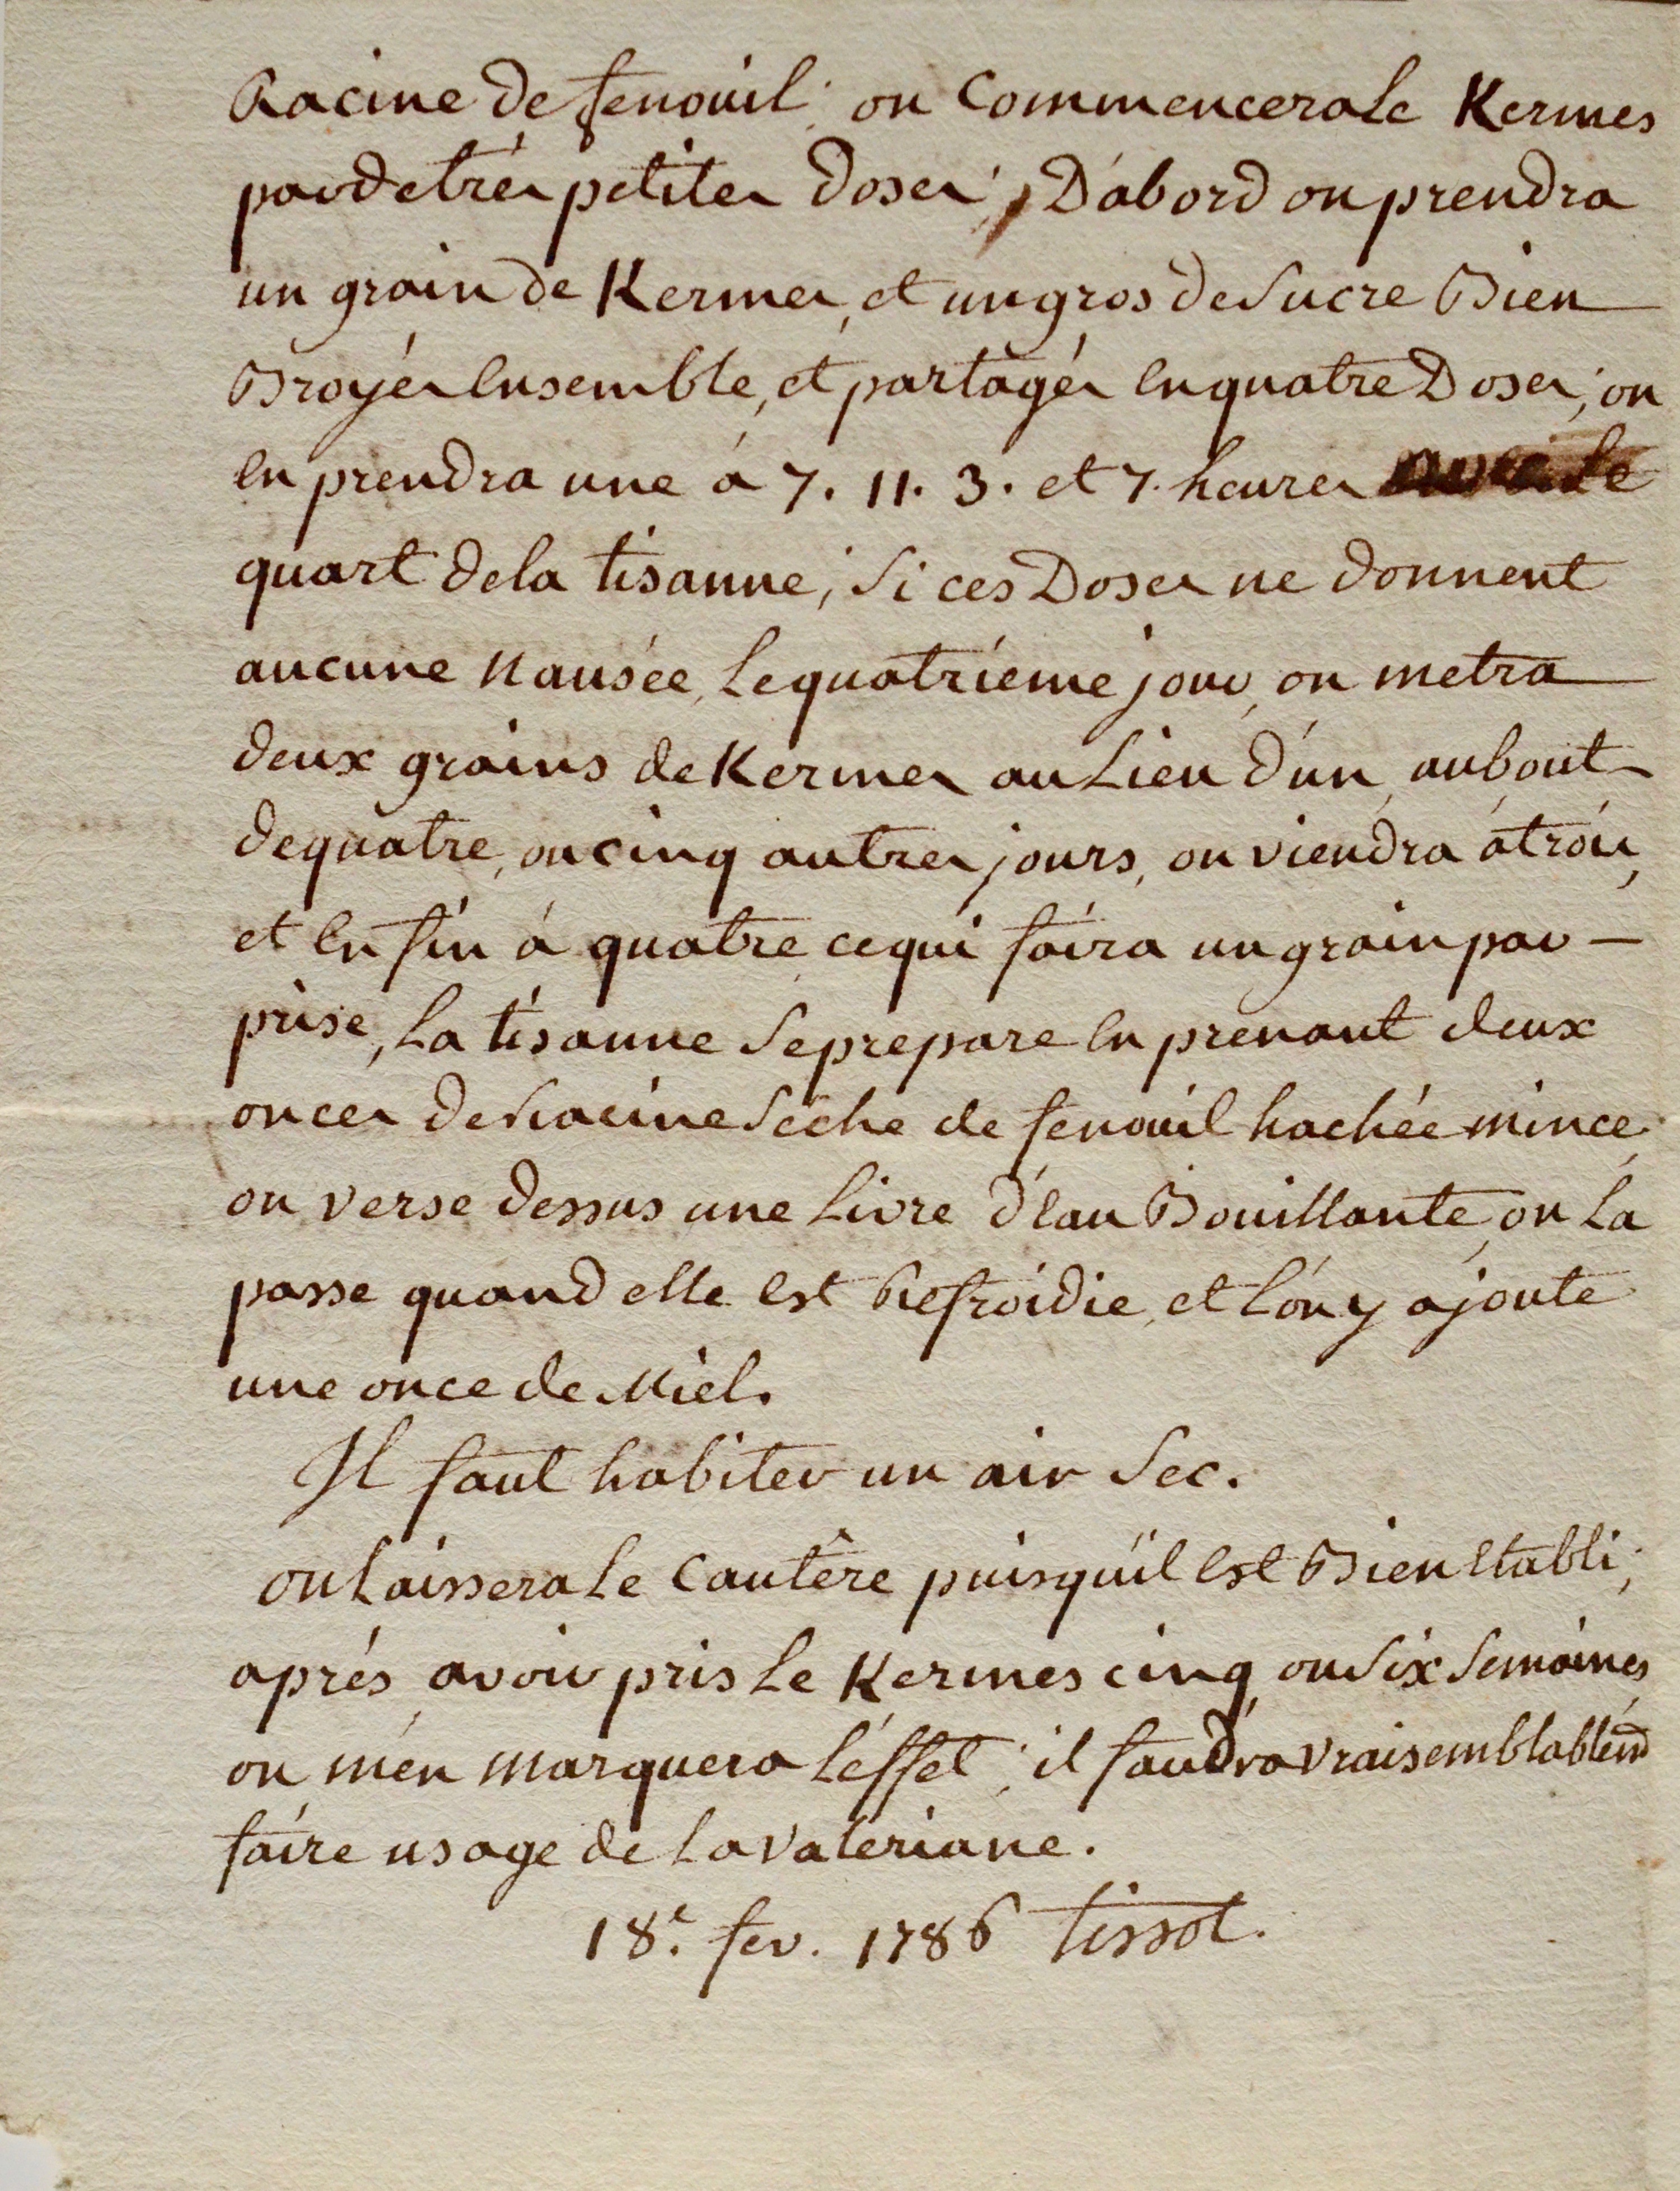 Racine de fenouil; on Commencera le Kermes
par de trés petites Doses; D'abord on prendra
un grain de Kermes, et un gros de Sucre Bien
Broyés ensemble, et partagés en quatre Doses; on
en prendra une à 7. 11. 3. et 7. heures avec le
quart de la tisanne; Si ces Doses ne donnent
aucune Nausée, Le quatriéme jour, on metra
deux grains de Kermes au Lieu d'un, au bout
de quatre, ou cinq autres jours, on viendra à trois,
et enfin à quatre, ce qui faira un grain par –
prise, La tisanne Se prepare en prenant deux
onces de Racine Séche de fenouil hachée mince,
on verse dessus une Livre d'eau Bouillante, on La
passe quand elle est Refroidie, et L'on y ajoute
une once de Miel.
Il faut habiter un air Sec.
on Laissera Le Cautère puisqu'il est Bien etabli;
aprés avoir pris Le Kermes cinq, ou Six Semaines,
on m'en marquera L'éffet; il faudra vraisemblablem̄t
faire usage de La Valeriane.
18.e fev. 1786 tissot.